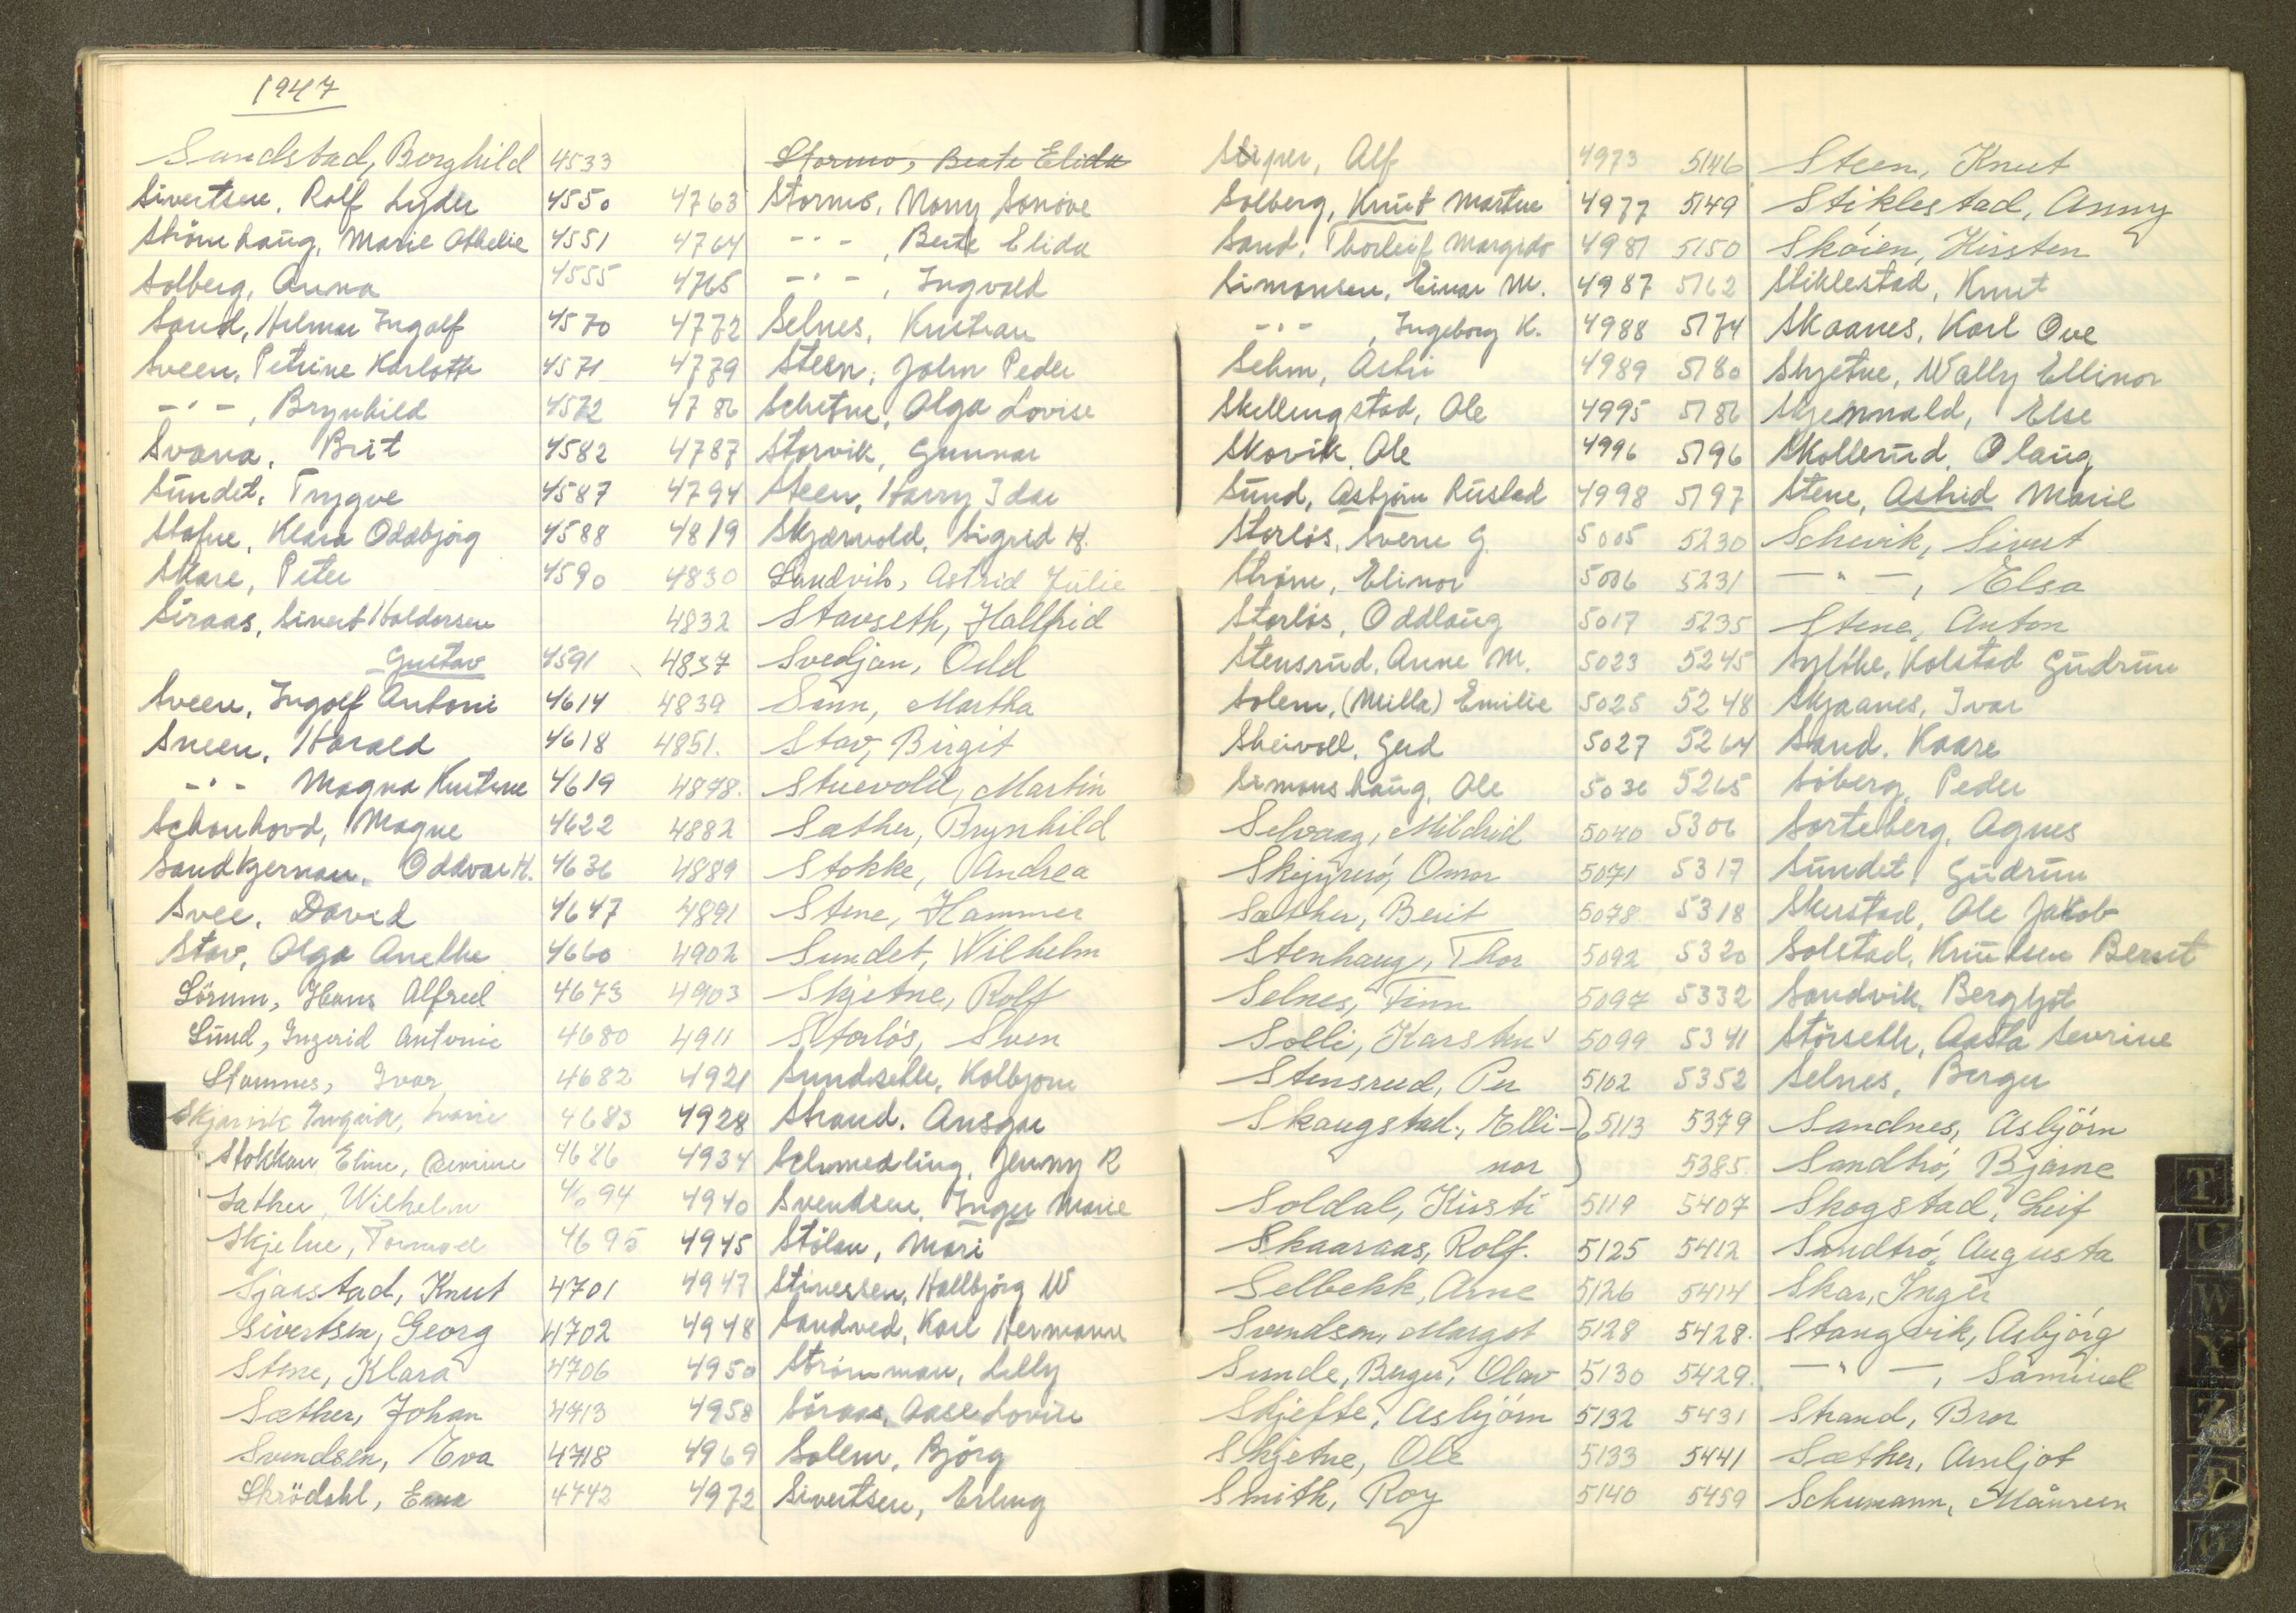 1947
Sandstad, Borghild 4533
Sivertsen, Rolf Lyder 4550
Strömhaug, Marie Othelie 4551
Solberg, Anna 4555
Sand, Hilmar Ingolf 4570
Sveen, Petrine Karlotte 4571
-"-, Brynhild 4572
Svana, Brit 4582
Sundet, Trygve 4587
Stafne, Klara Oddbjörg 4588
Skare, Peter 4590
Siraas, Sivert Haldorsen
Gustav 4591
Sveen, Ingolf Antoni 4614
Sneen, Harald 4618
-"- Magna Kristine 4619
Schouhovd, Magne 4622
Sandkjernan, Oddvar H. 4636
Svee, David 4647
Stav, Olga Anethe 4660
Sörum, Hans Alfred 4673
Sund, Ingerid Antonie 4680
Stamnes, Ivar 4682
Skjærvik Ingrid, Marie 4683
Stokkan Eline, 4686
Sæther, Wilhelm 4694
Skjelne, Tormod 4695
Sjaastad, Knut 4701
Sivertsen, Georg 4702
Stene, Klara 4706
Sæther, Johan 4713
Svendsen, Eva 4718
Skrödahl, Erna 4742
Stormo, Beate Elida
4763 Stormo, Mony Sonove
4764 -"-, Berte Elida
4765 -"-, Ingvald
4772 Selnes, Kristian
4779 Steen, John Peder
4786 Schetne, Olga Lovise
4787 Storvik, Gunnar
4794 Steen, Harry Idar
4819 Skjærvold, Sigrid K.
4830 Sandvik, Astrid Julie
4832 Stavseth, Hallfrid
4837 Svedjan, Odd
4839 Sinn, Martha
4851. Stav, Birgit
4878. Stuevold, Martin
4882 Sæther, Brynhild
4889 Stokke, Andrea
4891 Stene, Hammer
4902 Sundet, Wilhelm
4903 Skjetne, Rolf
4911 Storlös, Sven
4921 Sundseth, Kolbjorn
4928 Strand, Ansgar
4934 Schmedling, Jenny R
4940 Svendsen, Inger Marie
4945 Stölan, Mari
4947 Stinessen, Hallbjörg W
4948 Sandved, Karl Hermann
4950 Strömman, Lilly
4958 Söraas, Aase Lovise
4969 Solem, Björg
4972 Sivertsen, Erling
Stiper, Alf 4973
Solberg, Knut Martin 4977
Sand, Thorleif Margido 4981
Simonsen, Einar M. 4987
-"-, Ingeborg K. 4988
Sehm, Astri 4989
Skellingstad, Ole 4995
Skovik, Ole 4996
Sund, Asbjörn Rustad 4998
Storlös, Sverre G. 5005
Ström, Elinor 5006
Storlös, Oddlaug 5017
Stensrud, Anne M. 5023
Solem, (Milla) Emilie 5025
Skeivoll, Gerd 5027
Simonshaug, Ole 5036
Selvaag, Mildrid 5040
Skjyresö, Omar 5071
Sæther, Berit 5078
Stenhaug, Thor 5092
Selnes, Finn 5097
Solli, Karsten 5099
Stensrud, Per 5102
Skaugstad, Elli-
nor } 5113
Soldal, Kirsti 5119
Skaaraas, Rolf. 5125
Selbekk, Arne 5126
Svendsen, Margot 5128
Sunde, Berger, Olav 5130
Skjefte, Asbjörn 5132
Skjetne, Ole 5133
Smith, Roy 5140
5146 Steen, Knut
5149 Stiklestad, Anny
5150 Sköien, Kirsten
5162 Stiklestad, Knut
5174 Skaanes, Karl Ove
5180 Skjetne, Wally Ellinor
5186 Skjennald, Else
5196 Skollerud, Olaug
5197 Stene, Astrid Marie
5230 Schevik, Sivert
5231 -"-, Elsa
5235 Stene, Anton
5245 Sylthe, Kolstad Gudrun
5248 Skjaanes, Ivar
5264 Sand, Kaare
5265 Söberg, Peder
5306 Sorteberg, Agnes
5317 Sundet, Gudrun
5318 Skerstad, Ole Jakob
5320 Solstad, Knudsen Bernt
5332 Sandvik, Bergljot
5341 Störseth, Aasta Sevrine
5352 Selnes, Berger
5379 Sandnes, Asbjörn
5385. Sandtrö, Bjarne
5407 Skogstad, Leif
5412 Sandtrö, Augusta
5414 Skar, Inger
5428. Stangvik, Asbjörg
5429. -"-, Samuel
5431 Strand, Bror
5441 Sæther, Arnljot
5459 Schumann, Maureen
T
U
W
Y
Z
Æ
Ö